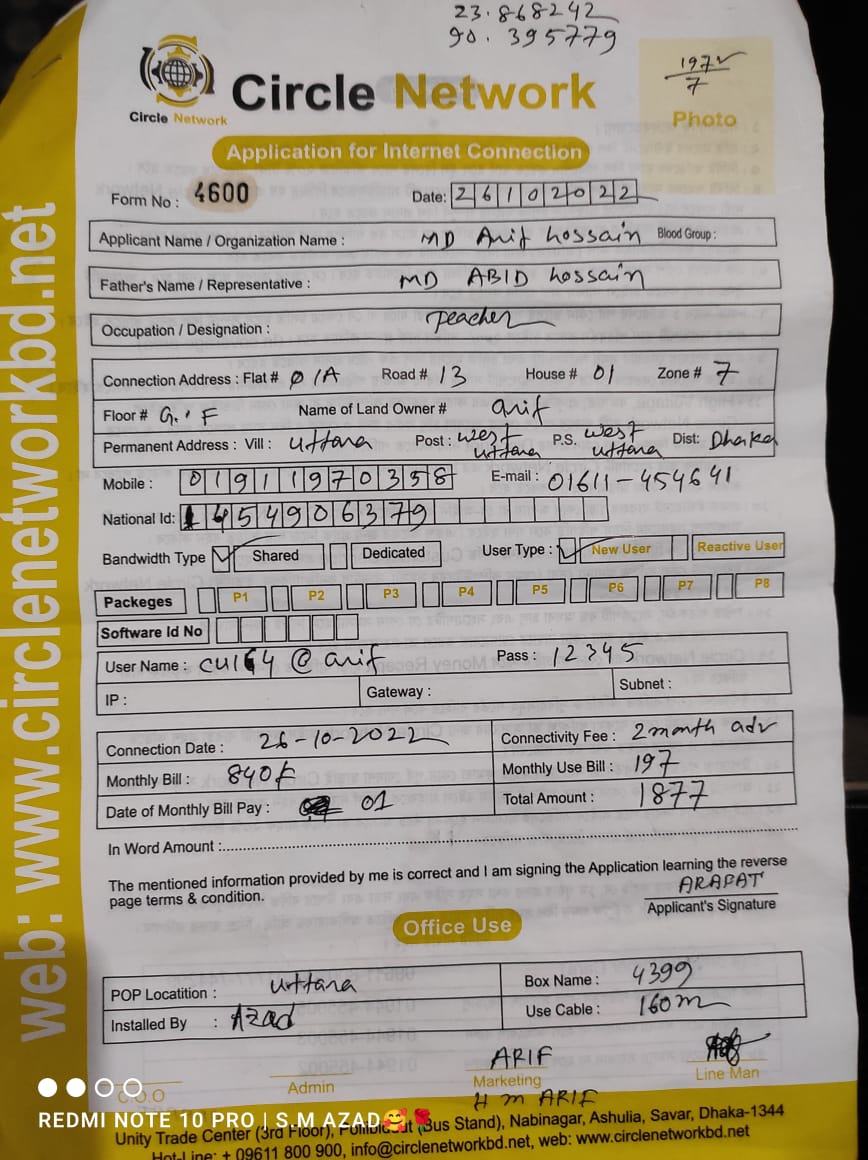 23.868242
90.395779
Circle Network
Circle Network
197
7
Photo
Application for Internet Connection
Form No : 4600
Date: 26102022
Applicant Name / Organization Name : MD Arif Hossain Blood Group :
Father's Name / Representative : MD ABID Hossain
Occupation / Designation : Teacher
Connection Address : Flat # 01A Road # 13 House # 01 Zone # 7
Floor # G.F Name of Land Owner # arif
Permanent Address : Vill : Uttara Post : West Uttara P.S. West Uttara Dist: Dhaka
Mobile : 01911970358 E-mail : 01611-454641
National Id: 454906379
Bandwidth Type Shared Dedicated User Type : New User Reactive User
Packeges P1 P2 P3 P4 P5 P6 P7 P8
Software Id No
User Name : CU164 @ arif Pass : 12345
IP : Gateway : Subnet :
Connection Date : 26-10-2022 Connectivity Fee : 2 month adv
Monthly Bill : 840 Monthly Use Bill : 197
Date of Monthly Bill Pay : 01 Total Amount : 1877
In Word Amount :
The mentioned information provided by me is correct and I am signing the Application learning the reverse
page terms & condition.
ARAPAT
Applicant's Signature
Office Use
POP Locatition : Uttara Box Name : 4399
Installed By : Azad Use Cable : 160m
C.O.O Admin ARIF Marketing Line Man
H M ARIF
REDMI NOTE 10 PRO | S.M AZAD🥰🌹
Unity Trade Center (3rd Floor), (Bus Stand), Nabinagar, Ashulia, Savar, Dhaka-1344
Hot-Line: + 09611 800 900, info@circlenetworkbd.net, web: www.circlenetworkbd.net
web: www.circlenetworkbd.net